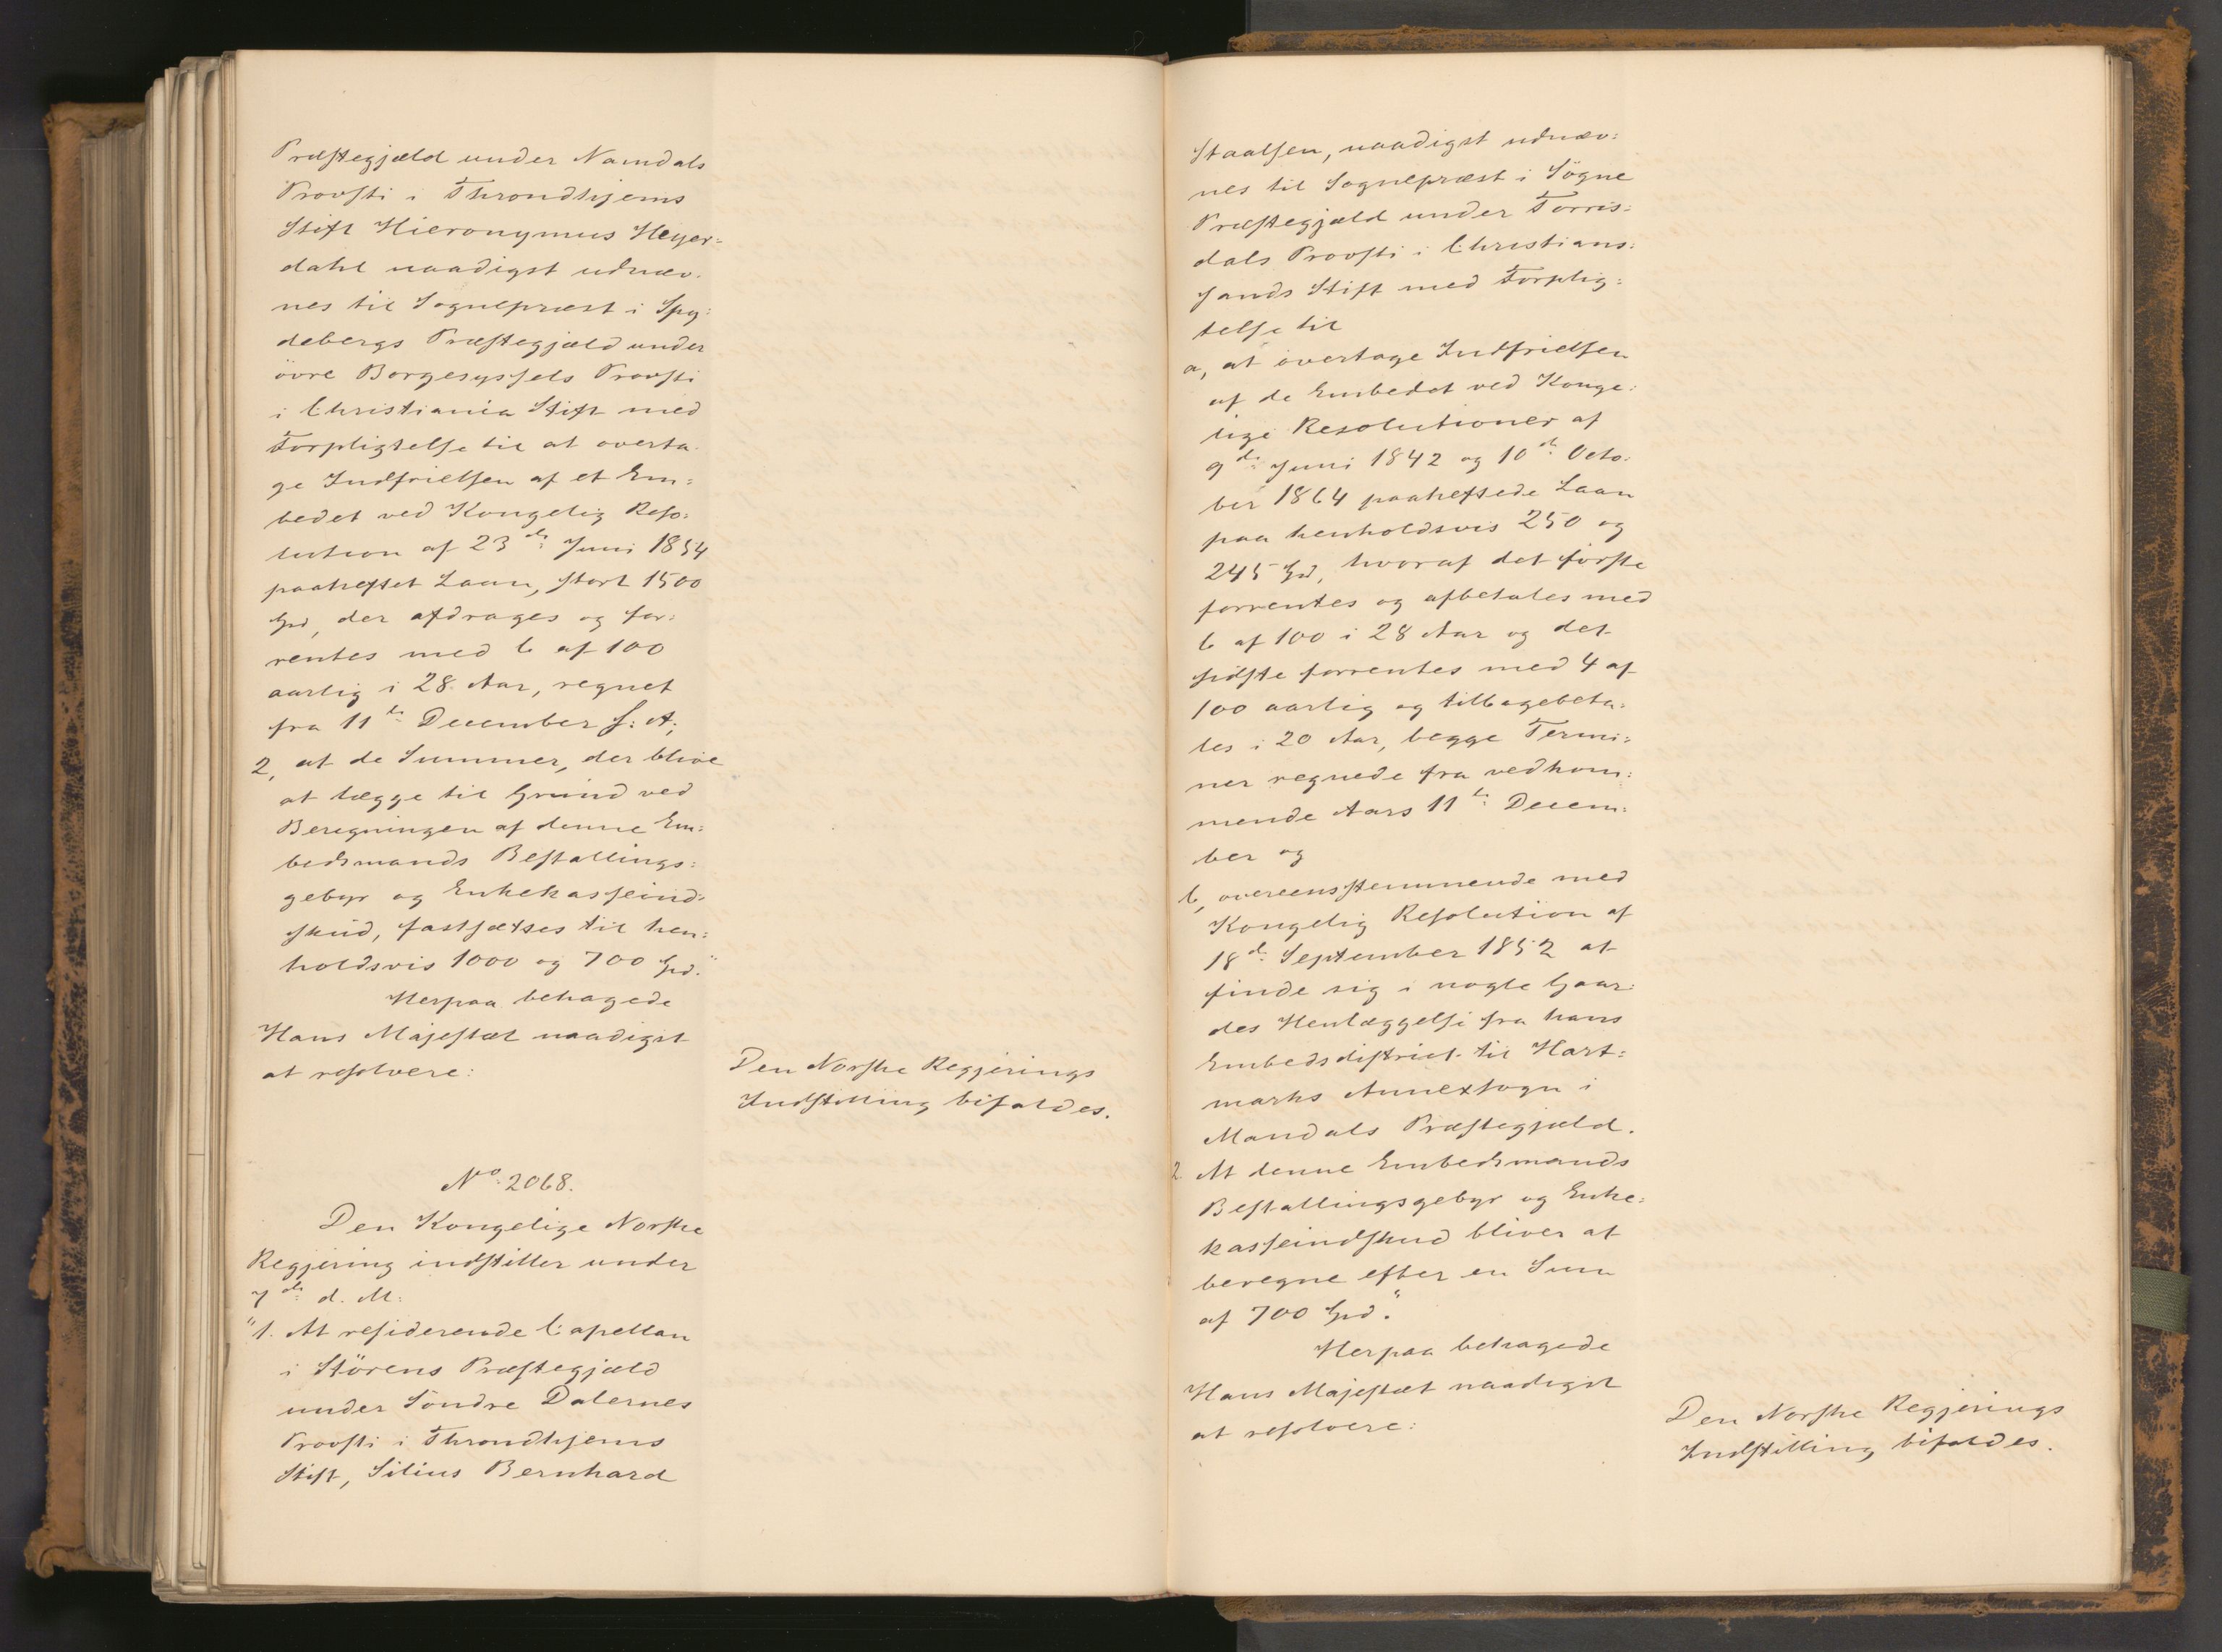 Præstegjæld under Namdals
Provsti i Throndhjems
Stift Hieronymus Heyer=
dahl naadigst udnæv=
nes til Sognepræst i Spy=
debergs Præstegjæld under
övre Borgesyssels Provsti
i Christiania Stift med
Forpligtelse til at overta=
ge Indfrielsen af et Em=
bedet ved Kongelig Reso=
lution af 23de Juni 1854
paaheftet Laan, stort 1500
Spd, der afdrages og for=
rentes med 6 af 100
aarlig i 28 Aar, regnet
fra 11te December s: A;
2, at de Summer, der blive
at lægge til Grund ved
Beregningen af denne Em=
bedsmands Bestallings=
gebyr og Enkekasseind=
skud, fastsættes til hen=
holdsvis 1000 og 700 Spd."
Herpaa behagede
Hans Majestæt naadigst
at resolvere:
Den Norske Regjerings
Indstilling bifaldes.
No 2068.
Den Kongelige Norske
Regjering indstiller under
7de d. M:
"1. At residerende Capellan
i Störens Præstegjæld
under Söndre Dalernes
Provsti i Throndhjems
Stift, Silius Bernhard
Staalsen, naadigst udnæv=
nes til Sognepræst i Sögne
Præstegjæld under Torris=
dals Provsti i Christians=
sands Stift med Forplig=
telse til
a, at overtage Indfrielsen
af de Embedet ved Konge=
lige Resolutioner af
9de Juni 1842 og 10de Octo=
ber 1864 paaheftede Laan
paa henholdsvis 250 og
245 Spd, hvoraf det förste
forrentes og afbetales med
6 af 100 i 28 Aar og det
sidste forrentes med 4 af
100 aarlig og tilbagebeta=
les i 20 Aar, begge Termi=
ner regnede fra vedkom=
mende Aars 11te Decem=
ber og
b, overeensstemmende med
Kongelig Resolution af
18de September 1852 at
finde sig i nogle Gaar=
des Henlæggelse fra hans
Embedsdistrict til Hart=
marks Annexsogn i
Mandals Præstegjæld.
2. At denne Embedsmands
Bestallingsgebyr og Enke=
kasseindskud bliver at
beregne efter en Sum
af 700 Spd."
Herpaa behagede
Hans Majestæt naadigst
at resolvere:
Den Norske Regjerings
Indstilling bifaldes.